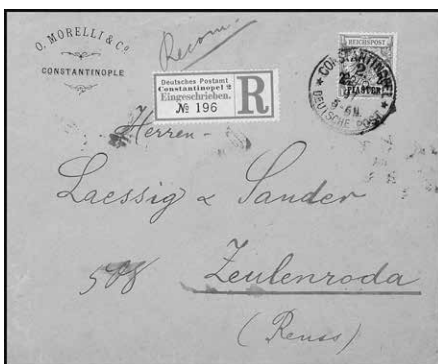 O. MORELLI & Co.
CONSTANTINOPLE
Recom.
Deutsches Postamt
Constantinopel 2
Eingeschrieben.
№ 196
R
REICHSPOST
PIASTER
CONSTANTINOPEL
2
5-6N.
DEUTSCHE POST
Herren
Laessig & Sander
508
Zeulenroda
(Reuss)